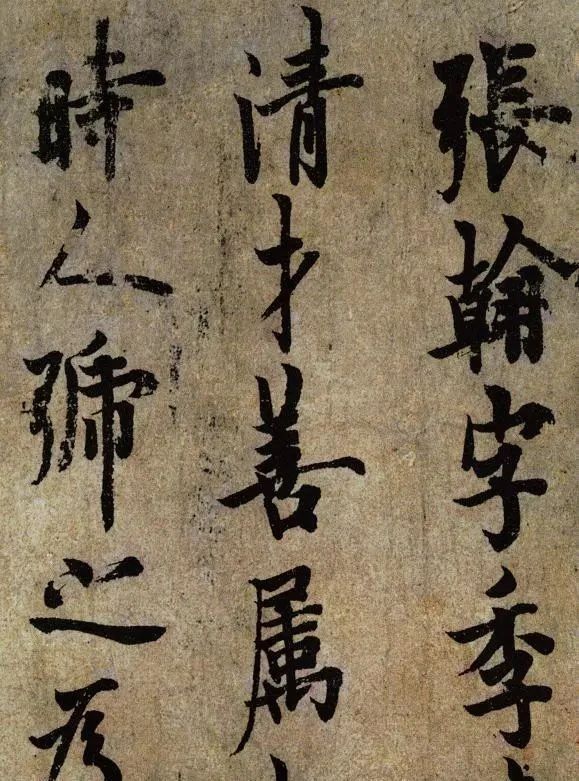 張翰字季
清才善属
時人號之為